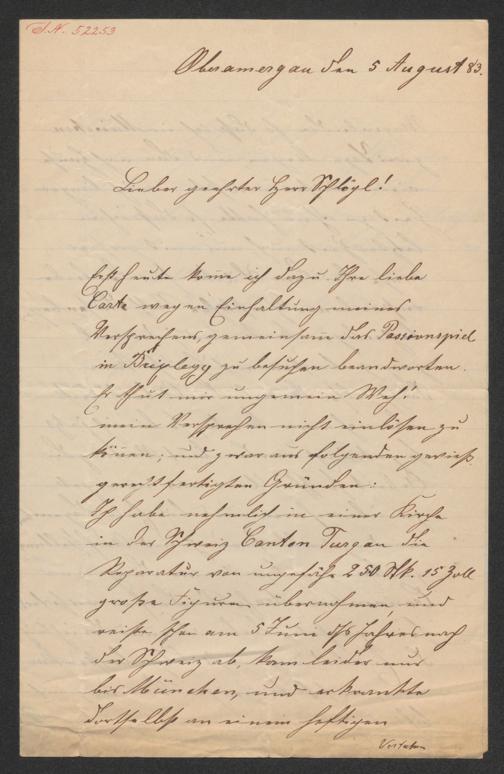 I.N. 52253
Oberamergau den 5 August 83.
Lieber geehrter Herr Schlögl!
Erst heute kome ich dazu Ihre liebe
Carte wegen Einhaltung meines
Versprechens gemeinsam das Passionspiel
in Brixlegg zu besuchen beandworten.
Es thut mir ungemein Weh!
mein Versprechen nicht einlösen zu
könen; und zwar aus folgenden gewieß
gerechtfertigten Gründen:
Ich habe nehmlich in einer Kirche
in der Schweiz Canton Turgau die
Reparatur von ungefähr 250 Stk. 15 Zoll
große Figuren übernohmen und
reiste schon am 5 Juni dß Jahres nach
der Schweiz ab, kam leider nur
bis München, und erkrankte
dortselbst an einem heftigen